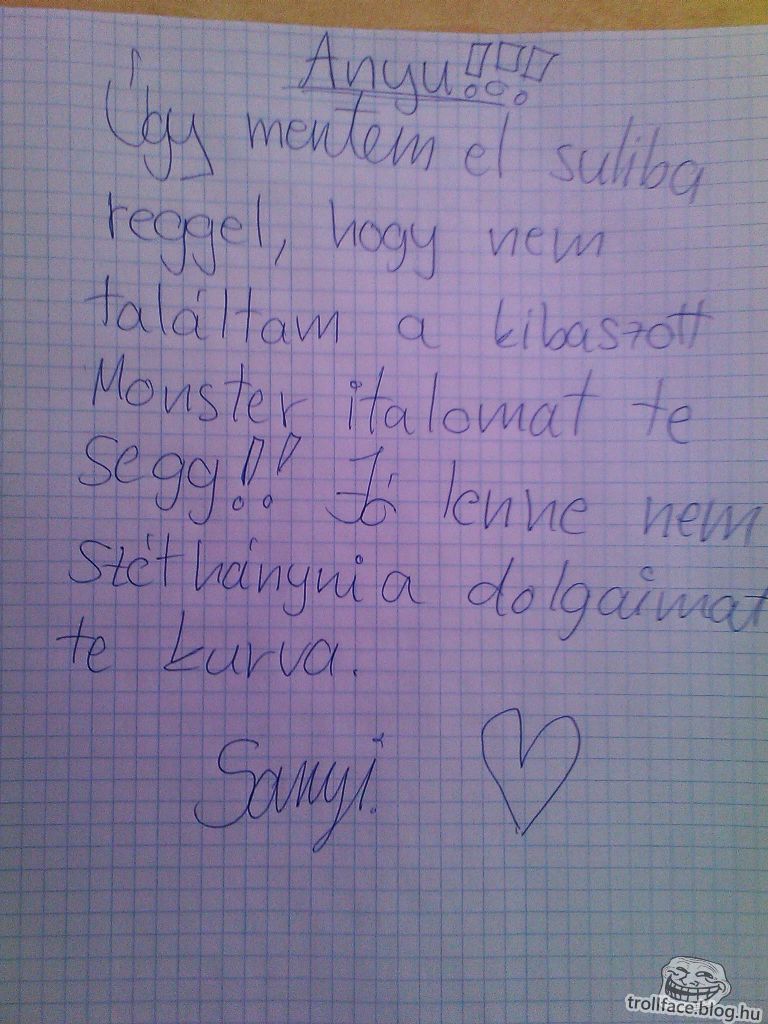 Anyu!!!
Úgy mentem el suliba
reggel, hogy nem
találtam a kibaszott
Monster italomat te
segg!! Jó lenne nem
széthányni a dolgaimat
te kurva.
Sanyi.
trollface.blog.hu